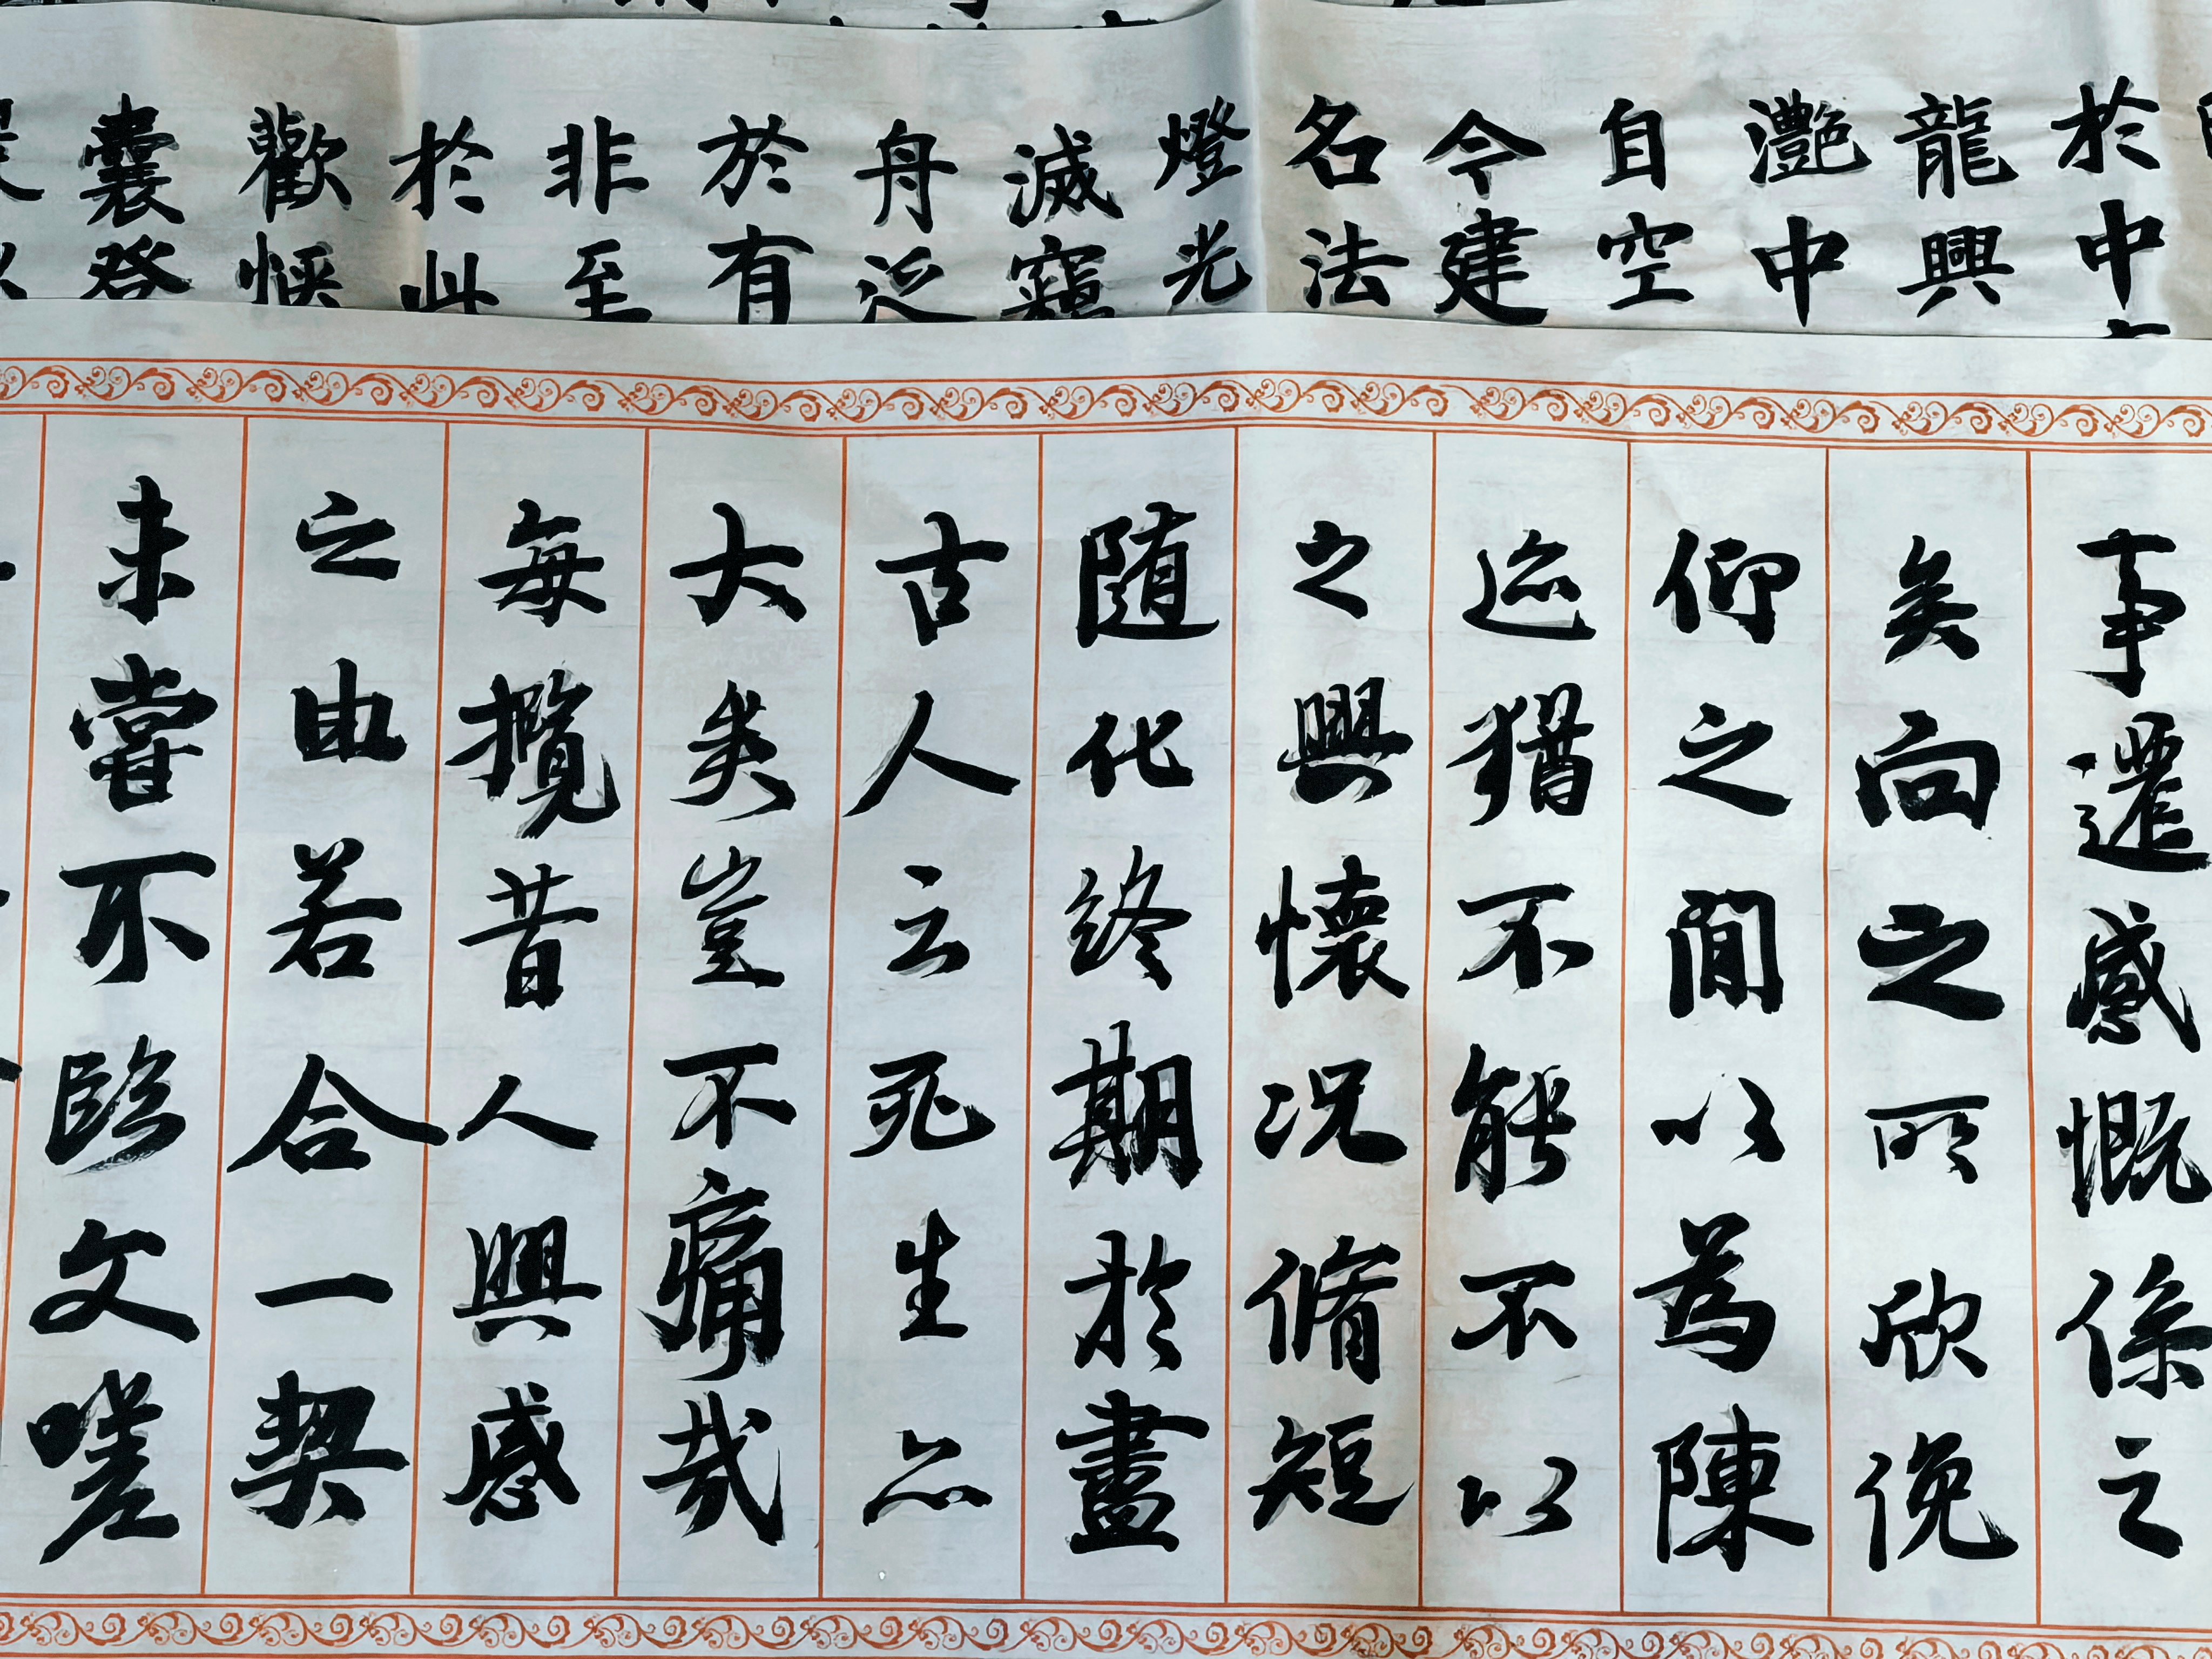 於中
龍興
灔中
自空
今建
名法
燈光
滅竊
舟泛
於有
非至
於此
歡惬
囊發
事遷感慨係之
矣向之所欣俛
仰之間以為陳
迹猶不能不以
之興懷况脩短
随化終期於盡
古人云死生亦
大矣豈不痛哉
每攬昔人興感
之由若合一契
未嘗不臨文嗟